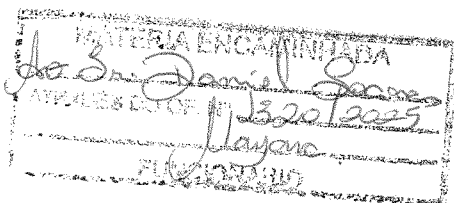 MATERIA ENCAMINHADA
Ao Sr. Daniel Soares
ATRAVÉS DO OF. Nº 1320/2025
Mayara
FUNCIONÁRIO